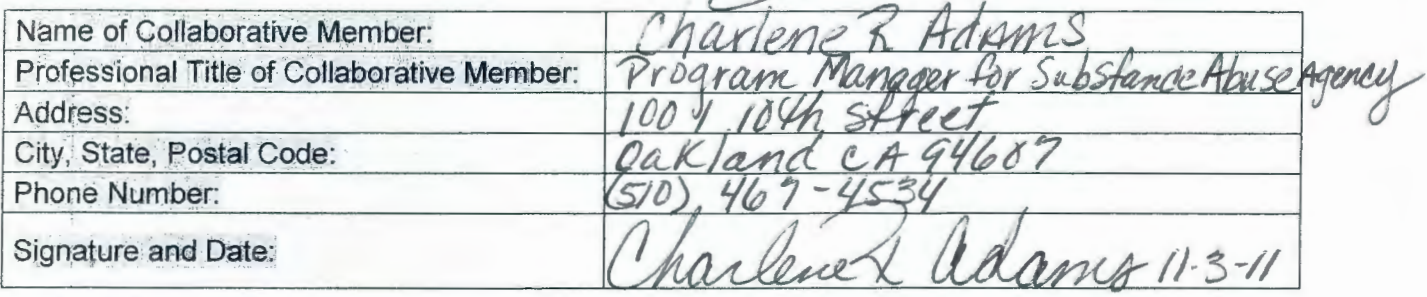 Name of Collaborative Member: Charlene R Adams
Professional Title of Collaborative Member: Program Manager for Substance Abuse Agency
Address: 1001 10th Street
City, State, Postal Code: Oakland CA 94607
Phone Number: (510) 467-4534
Signature and Date: Charlene R Adams 11-3-11